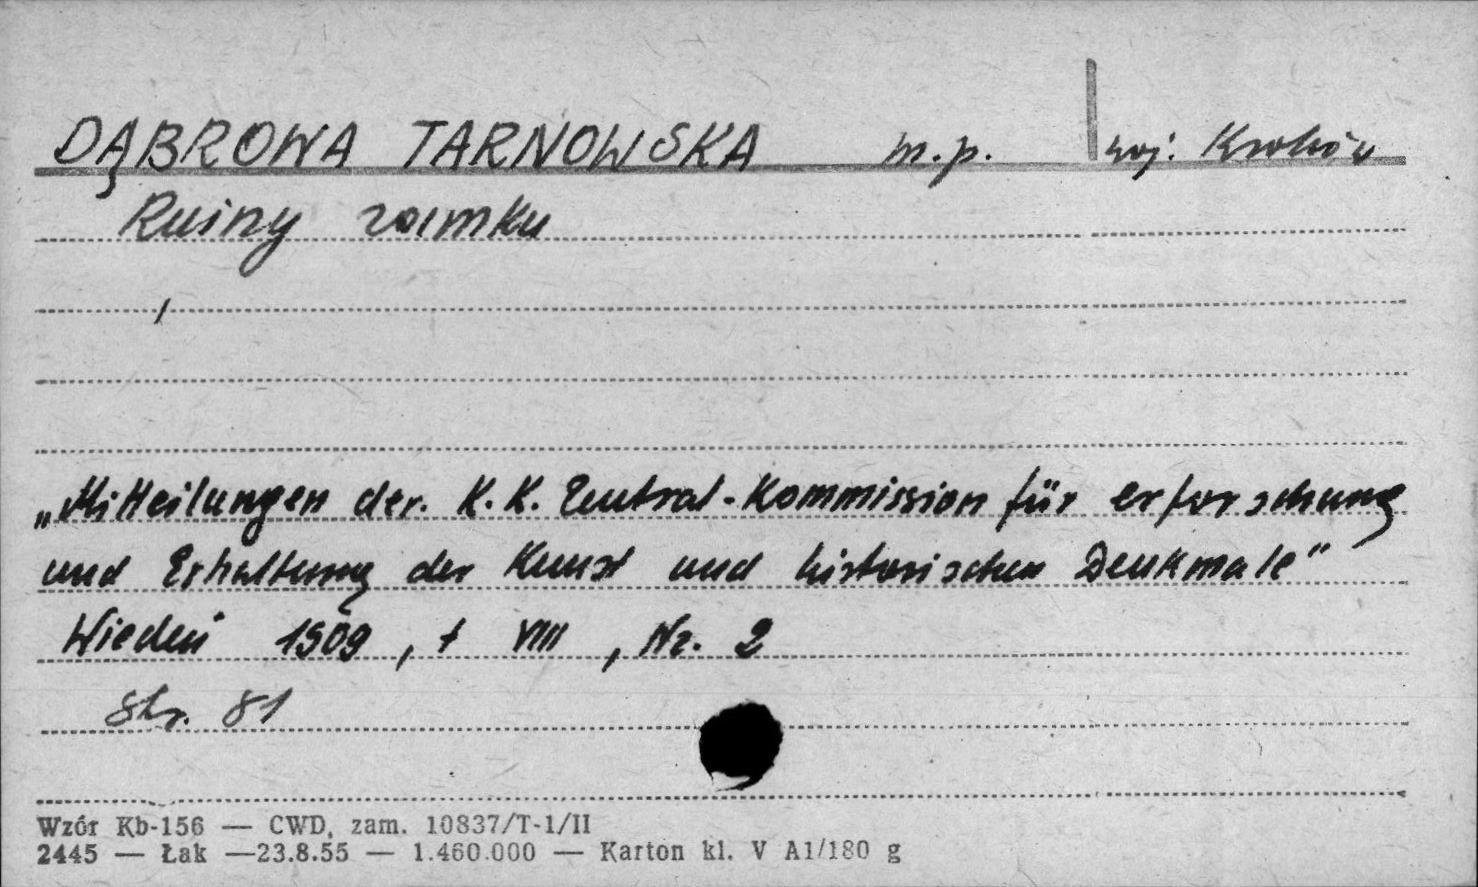 DĄBROWA TARNOWSKA m.p. woj. Kraków
Ruiny zamku
„Mitteilungen der. K. K. Zentral-Kommission für erforschung
und Erhaltung der Kunst und historischen Denkmale"
Wiedeń 1909, t VIII, Nr. 2
Str. 81
Wzór Kb-156 — CWD, zam. 10837/T-1/II
2445 — Łak —23.8.55 — 1.460.000 — Karton kl. V A1/180 g